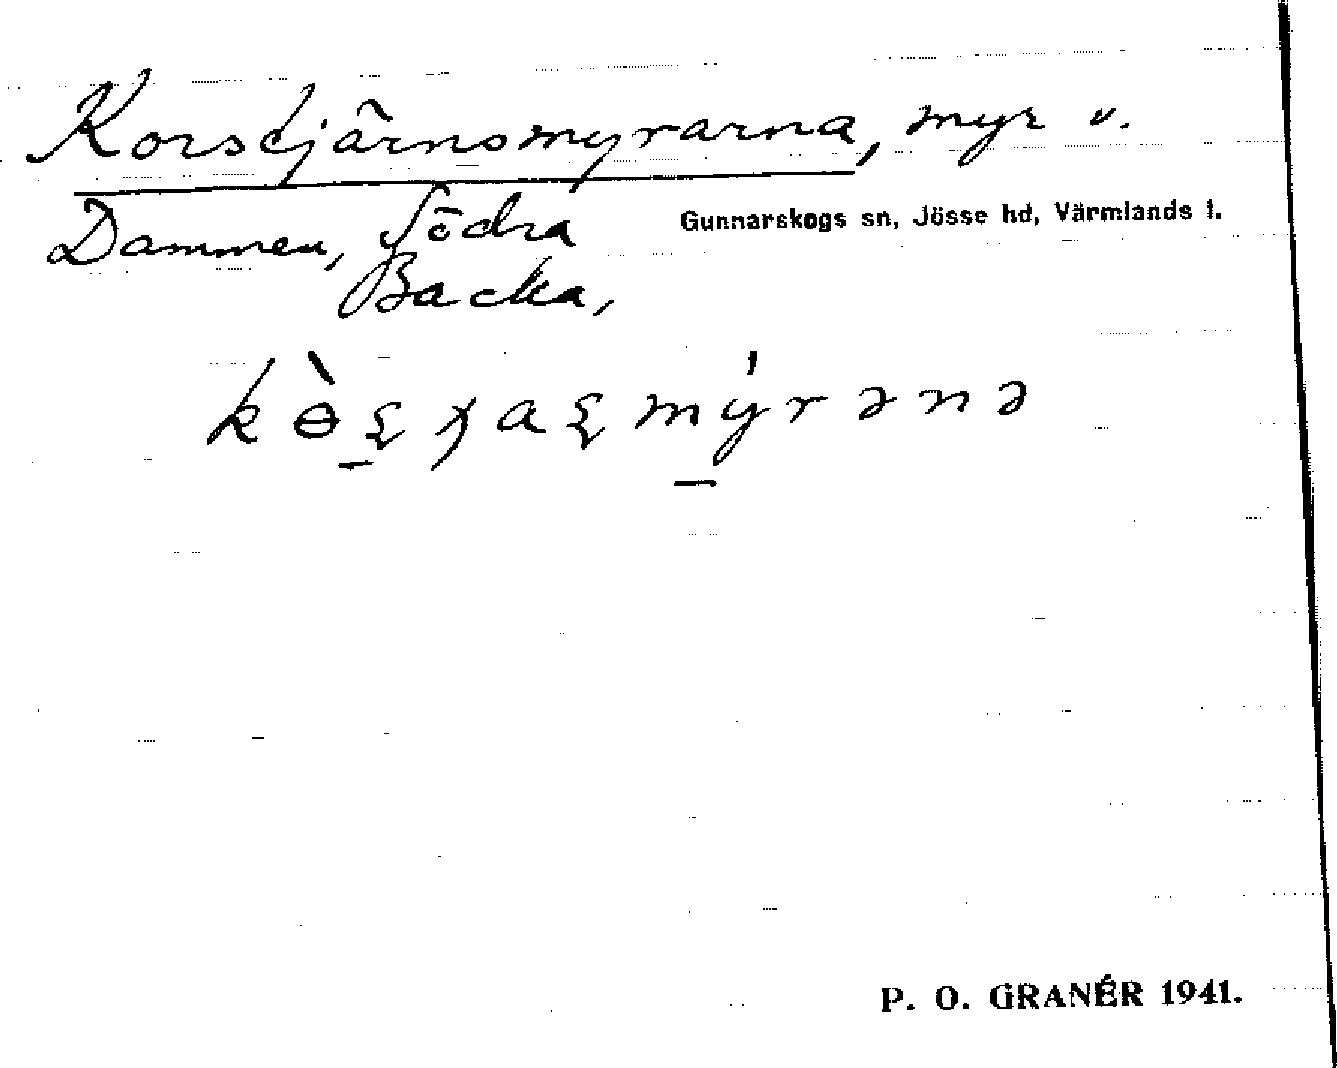 Korstjärnsmyrarna, myr v.
Dammen, Södra
Gunnarskogs sn, Jösse hd, Värmlands l.
Backa,
P. O. GRANÉR 1941.